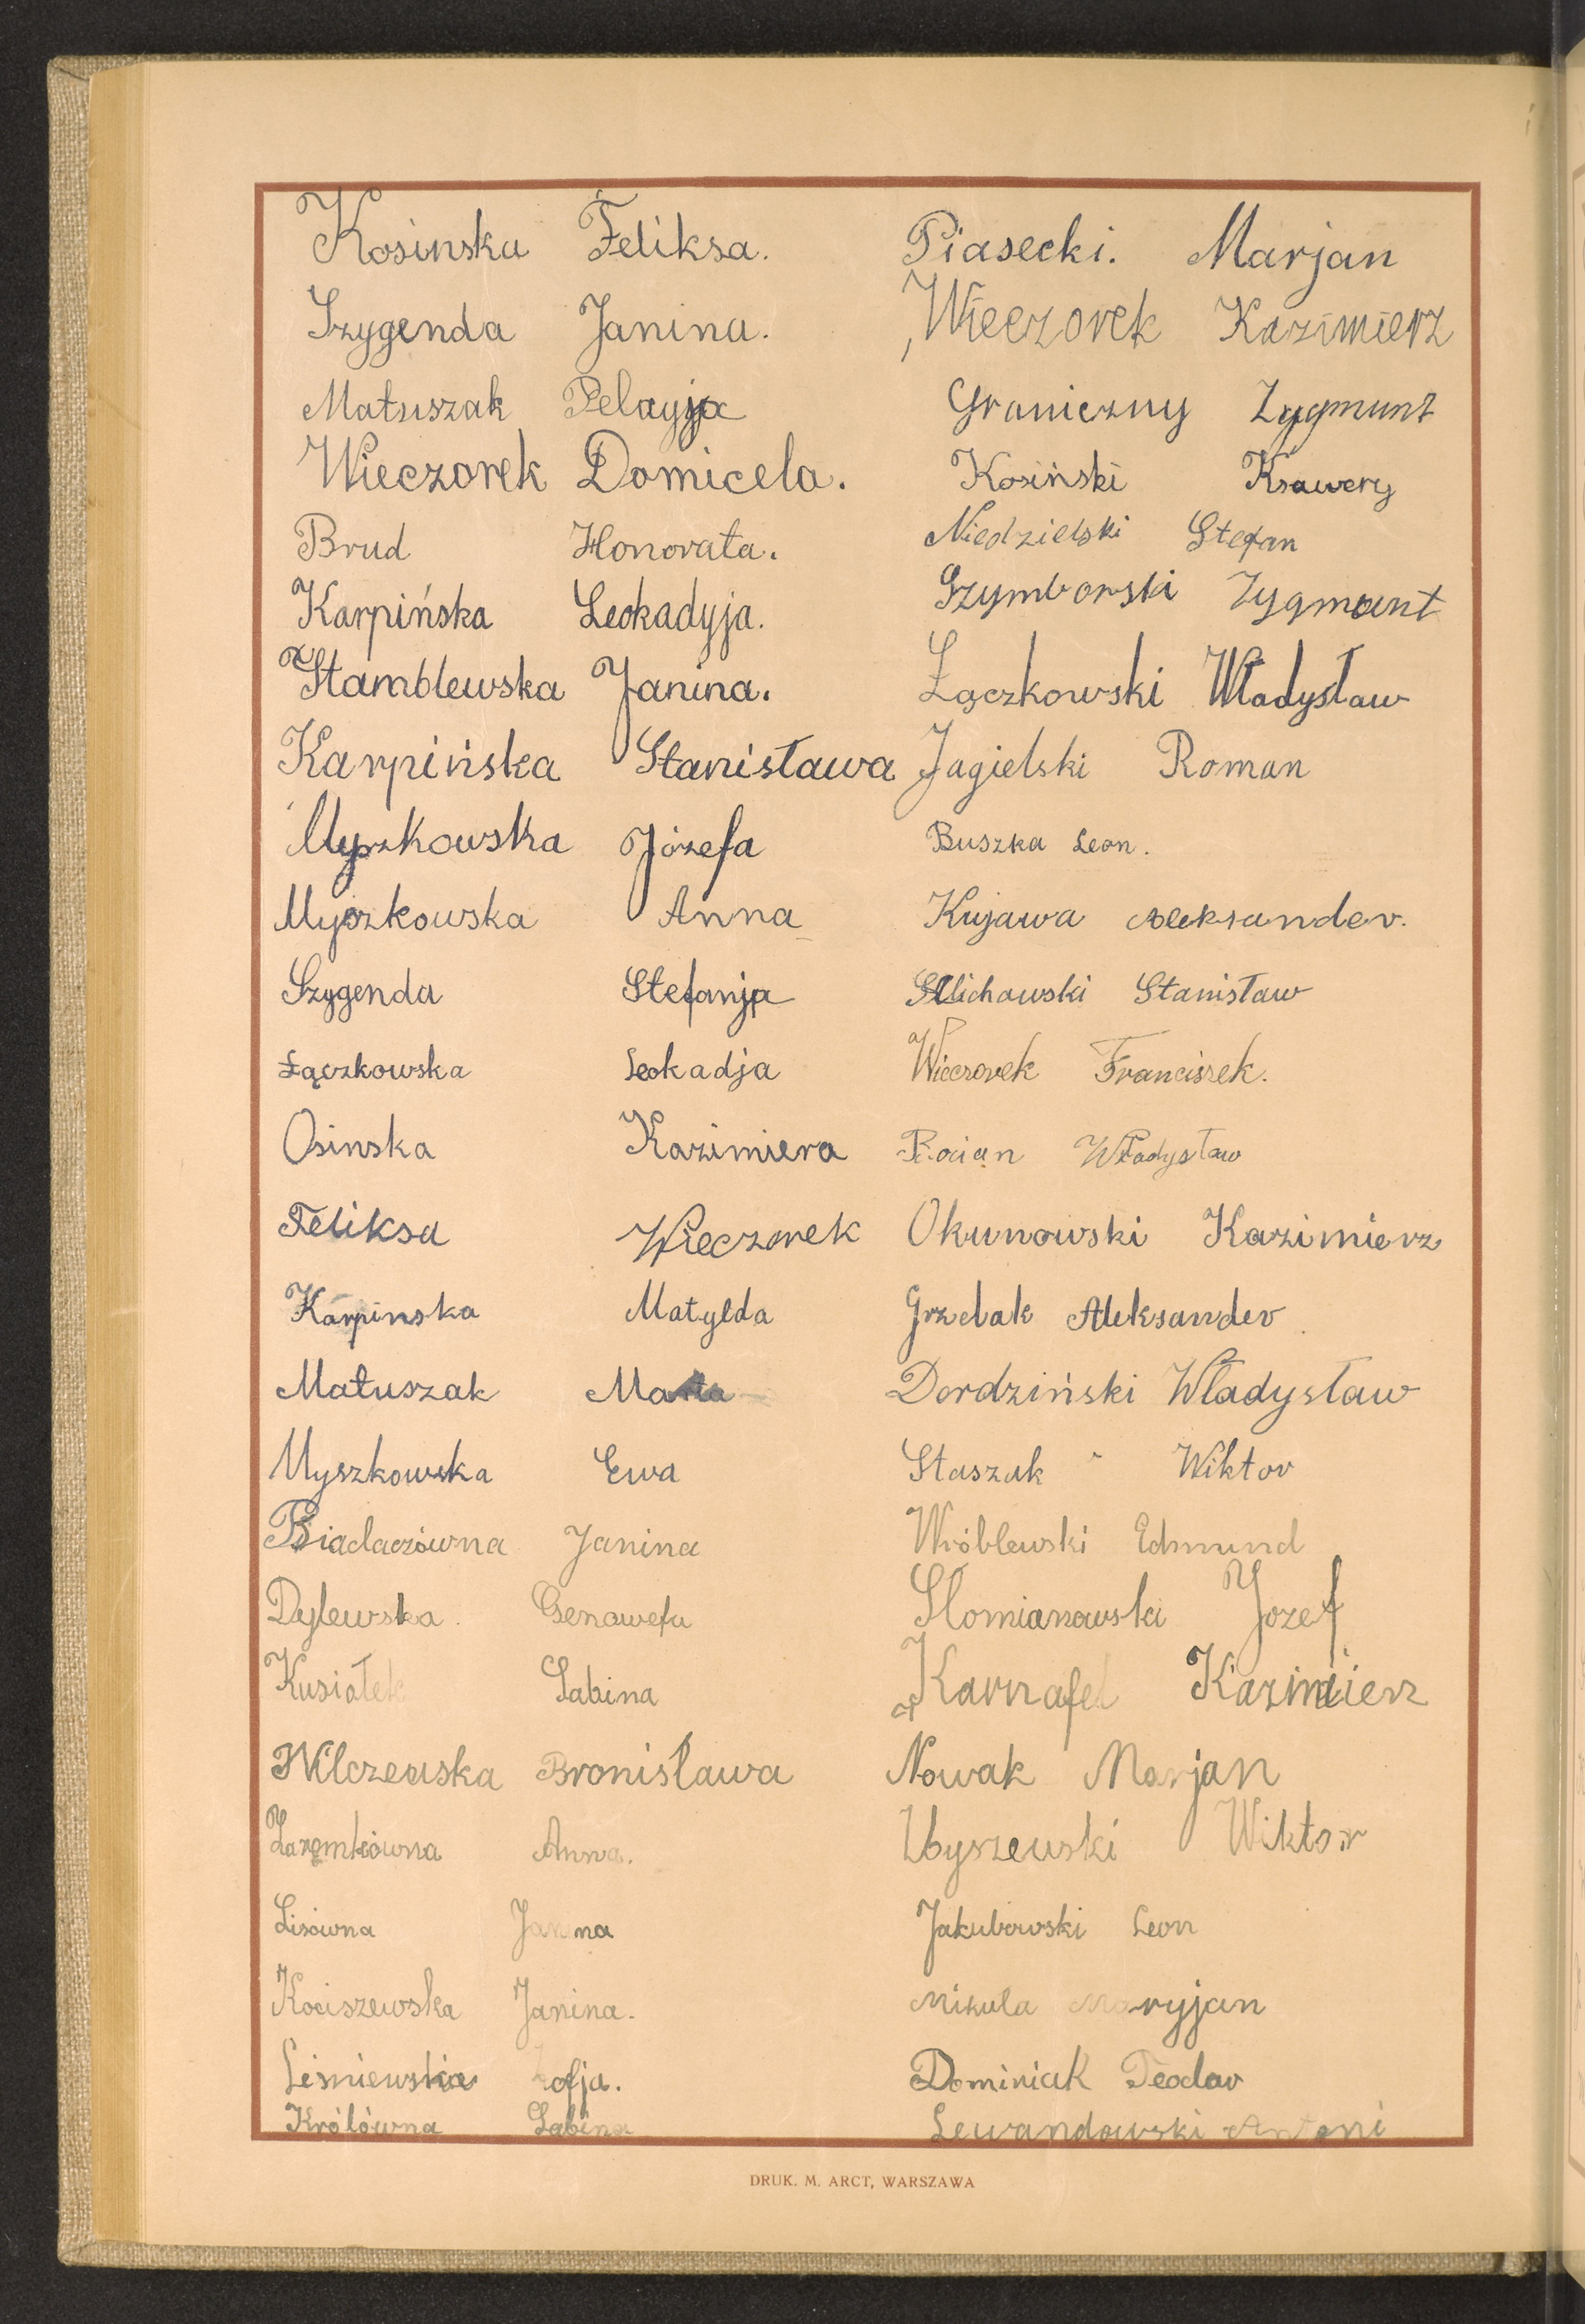 Kosinska Feliksa.
Szygenda Janina.
Matuszak Pelagja
Wieczorek Domicela.
Brud Honorata.
Karpińska Leokadyja.
Stamblewska Janina.
Karpińska Stanisława
Myszkowska Józefa
Myszkowska Anna
Szygenda Stefanja
Łączkowska Leokadja
Osinska Kazimiera
Feliksa Wieczorek
Karpinska Matylda
Matuszak Marta
Myszkowska Ewa
Biadaczówna Janina
Dylewska Genowefa
Kusiołek Sabina
Wilczewska Bronisława
Zarembówna Anna.
Lisówna Janina
Kociszewska Janina.
Leśniewska Zofja.
Królówna Sabina
Piasecki. Marjan
Wieczorek Kazimierz
Graniczny Zygmunt
Kosiński Ksawery
Niedzielski Stefan
Szymborski Zygmunt
Łączkowski Władysław
Jagielski Roman
Buszka Leon.
Kujawa Aleksander.
Slichowski Stanisław
Wieczorek Franciszek.
Rocian Władysław
Okunowski Kazimierz
Grzelak Aleksander
Dordziński Władysław
Staszak Wiktor
Wróblewski Edmund
Słomianowski Jozef
Karnafel Kazimierz
Nowak Marjan
Zbyszewski Wiktor
Jakubowski Leon
Mikula Maryjan
Dominiak Teodor
Lewandowski Antoni
DRUK. M. ARCT, WARSZAWA